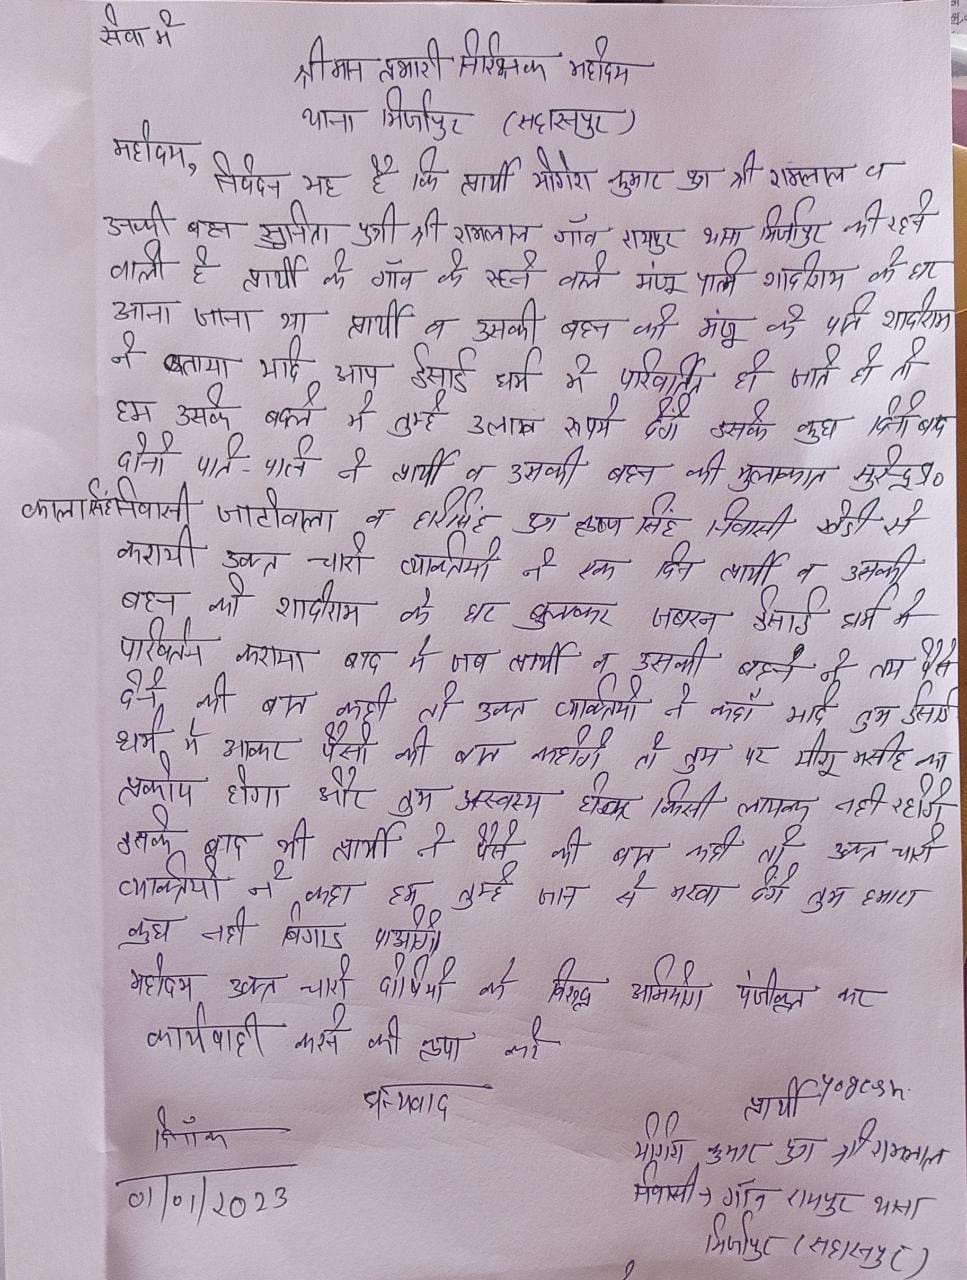 सेवा में
श्रीमान प्रभारी निरिक्षक महोदय
थाना मिर्जापुर (सहारनपुर)
महोदय,
निवेदन यह है कि प्रार्थी योगेश कुमार पुत्र श्री रामलाल व
उनकी बहन सुनिता पुत्री श्री रामलाल गाँव रायपुर थाना मिर्जापुर की रहने
वाली है प्रार्थी के गाँव के रहने वाले मंजू पत्नि शादीराम के घर
आना जाना था प्रार्थी व उसकी बहन को मंजू के पति शादीराम
ने बताया यदि आप ईसाई धर्म में परिवर्तित हो जाते हो तो
हम उसके बदले में तुम्हे 3लाख रूपये देंगे इसके कुछ दिनो बाद
दोनो पति-पत्नि ने प्रार्थी व उसकी बहन की मुलाकात सुरेन्द्र पु०
काला सिंह निवासी जाटोवाला व हरिसिंह पुत्र कृष्ण सिंह निवासी खेडी से
करायी उक्त चारो व्यक्तियो ने एक दिन प्रार्थी व उसकी
बहन को शादीराम के घर बुलाकर जबरन ईसाई धर्म में
परिवर्तन कराया बाद में जब प्रार्थी व उसकी बहन ने तय पैसे
देने की बात कही तो उक्त व्यक्तियो ने कहाँ यदि तुम ईसाई
धर्म में आकर पैसो की बात कहोगे तो तुम पर यीशू मसीह का
प्रकोप होगा और तुम अस्वस्थ होकर किसी लायक नही रहोगे
इसके बाद भी प्रार्थी ने पैसे की बात कही तो उक्त चारो
व्यक्तियो ने कहा हम तुम्हे जान से मरवा देंगे तुम हमारा
कुछ नही बिगाड पाओगे
महोदय उक्त चारो दोषियो के विरूद्ध अभियोग पंजीकृत कर
कार्यवाही करने की कृपा करे
धन्यवाद
प्रार्थी Yogesh.
दिनाँक
योगेश कुमार पुत्र श्री रामलाल
01/01/2023
निवासी → गाँव रायपुर थाना
मिर्जापुर (सहारनपुर)